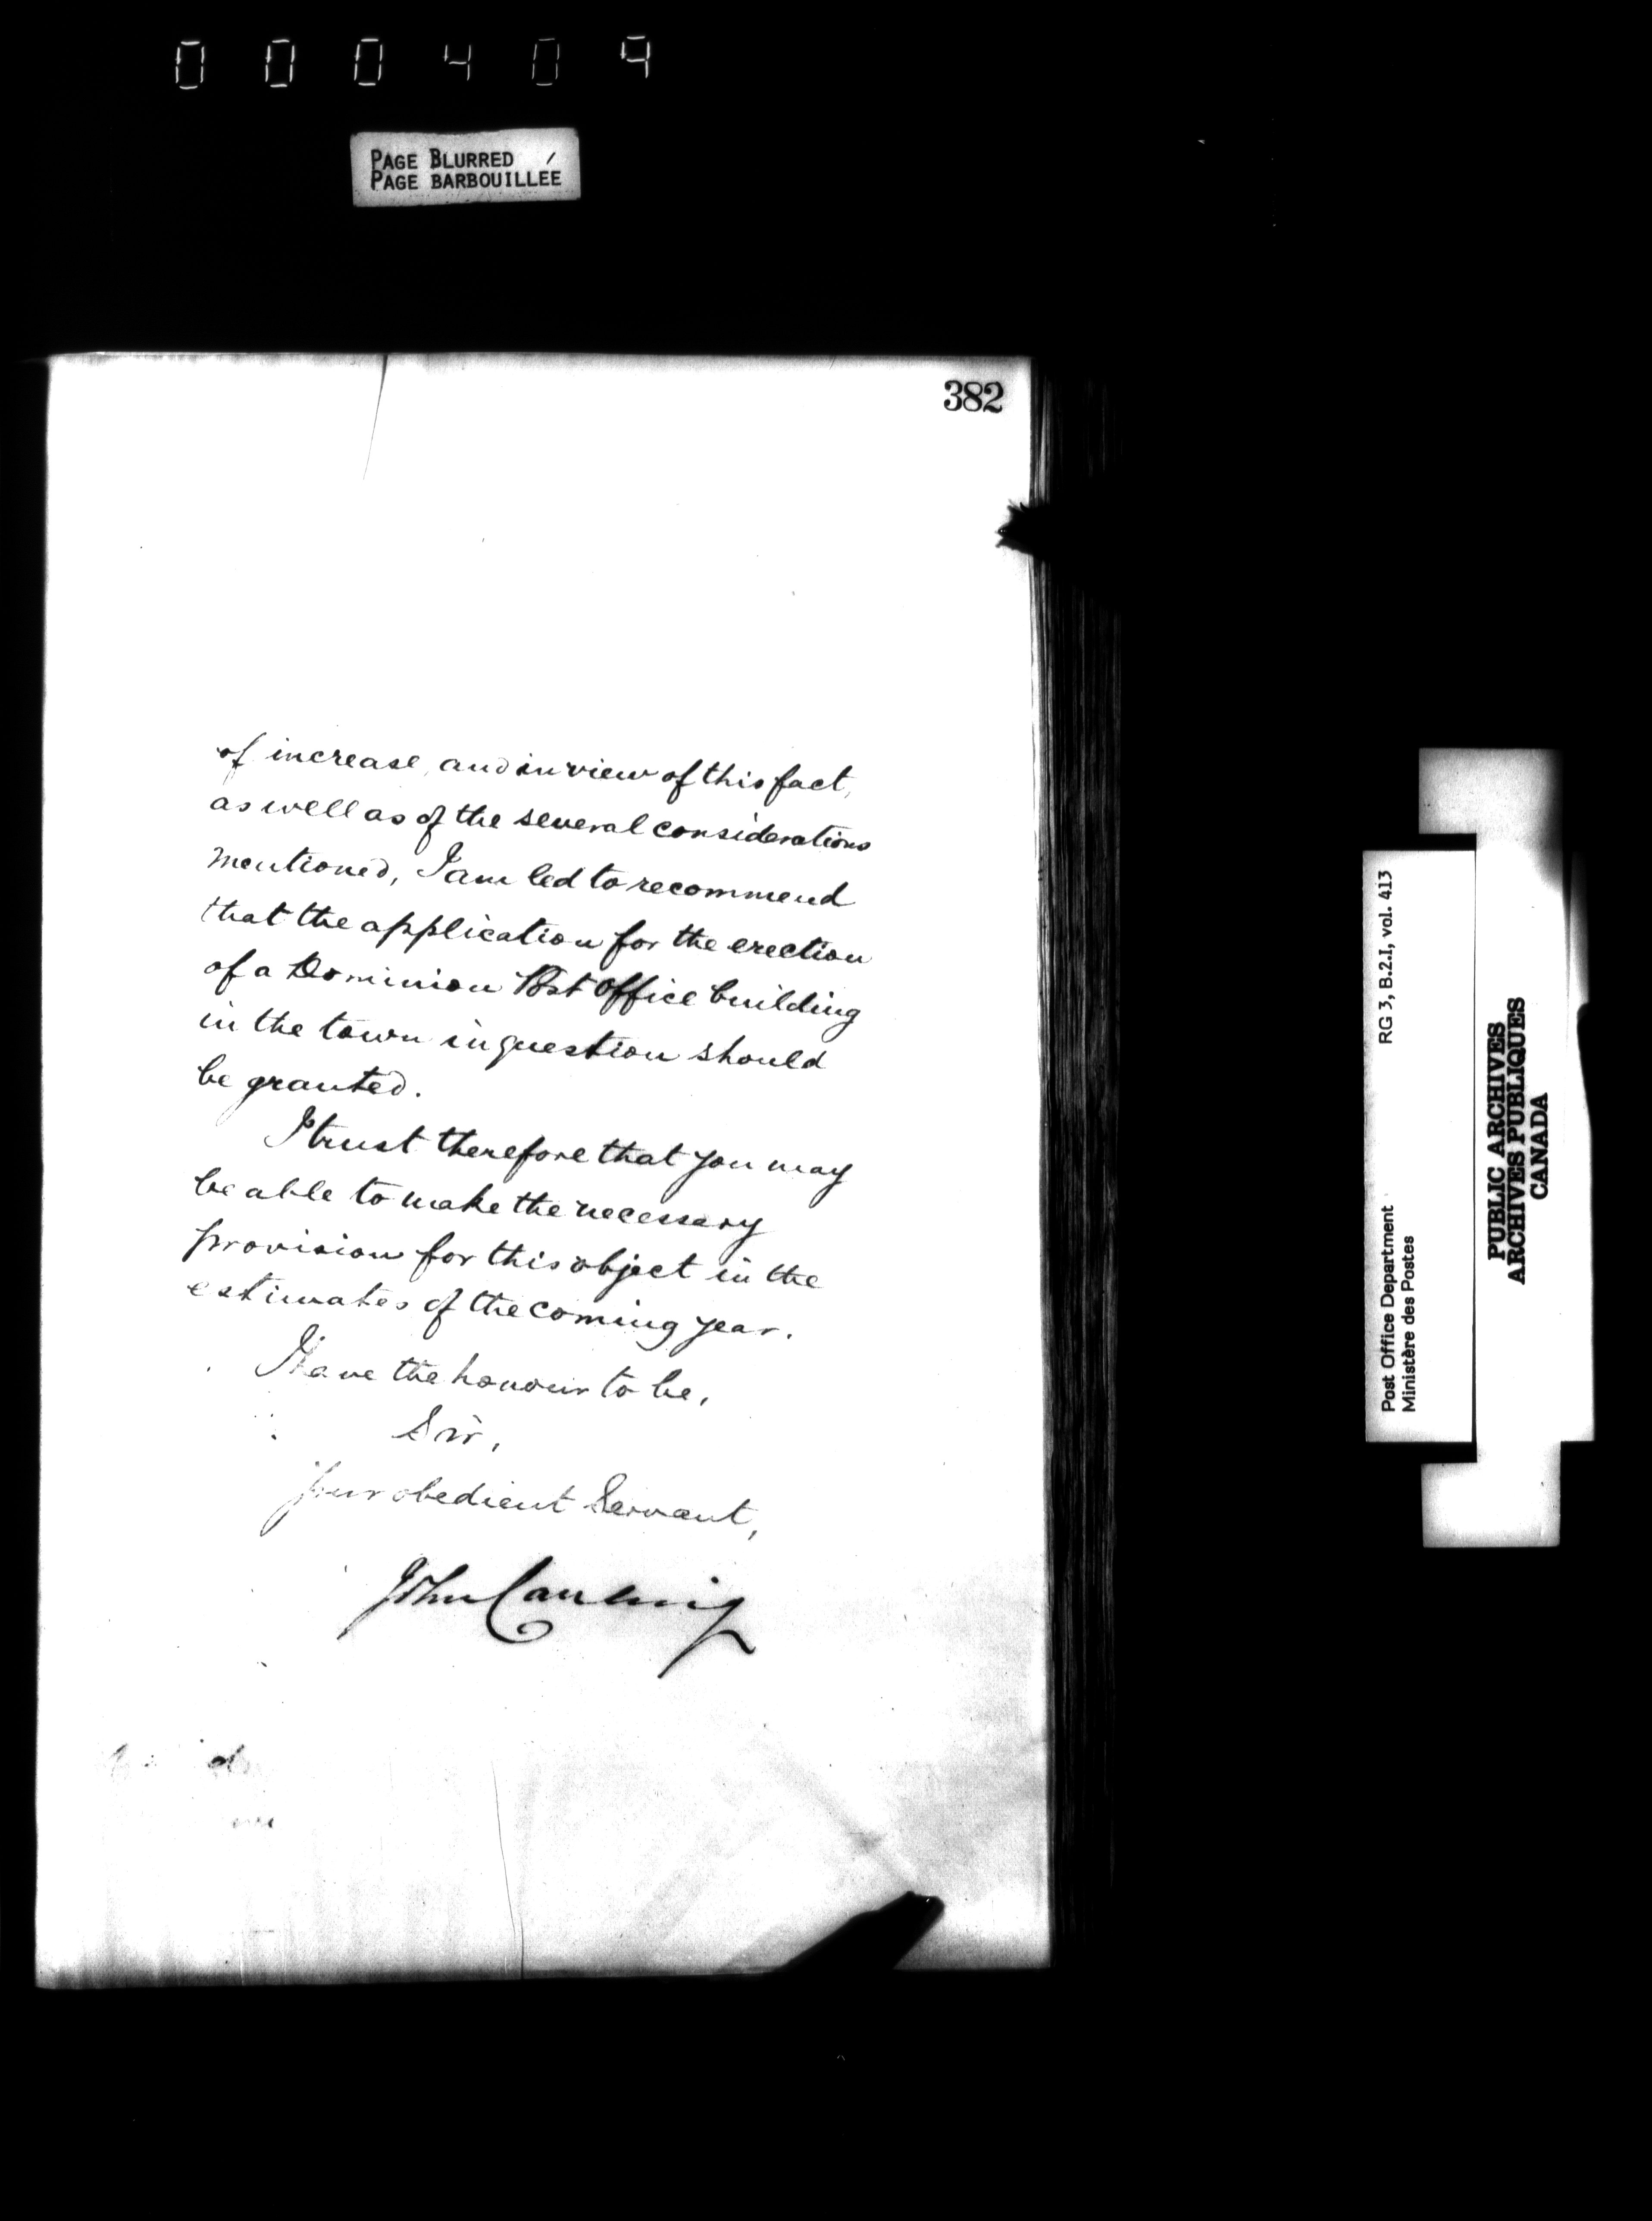 000409
PAGE BLURRED
PAGE BARBOUILLÉE
382
of increase, and in view of this fact,
as well as of the several considerations
mentioned, I am led to recommend
that the application for the erection
of a Dominion Post Office building
in the town in question should
be granted.
I trust therefore that you may
be able to make the necessary
provision for this object in the
estimates of the coming year.
I have the honour to be,
Sir,
Your obedient Servant,
John Carling
Post Office Department
Ministère des Postes
RG 3, B.2.I, vol. 413
PUBLIC ARCHIVES
ARCHIVES PUBLIQUES
CANADA